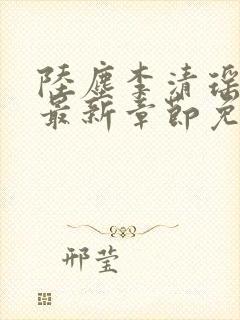 陆尘李清瑶
最新章节免
邢莹